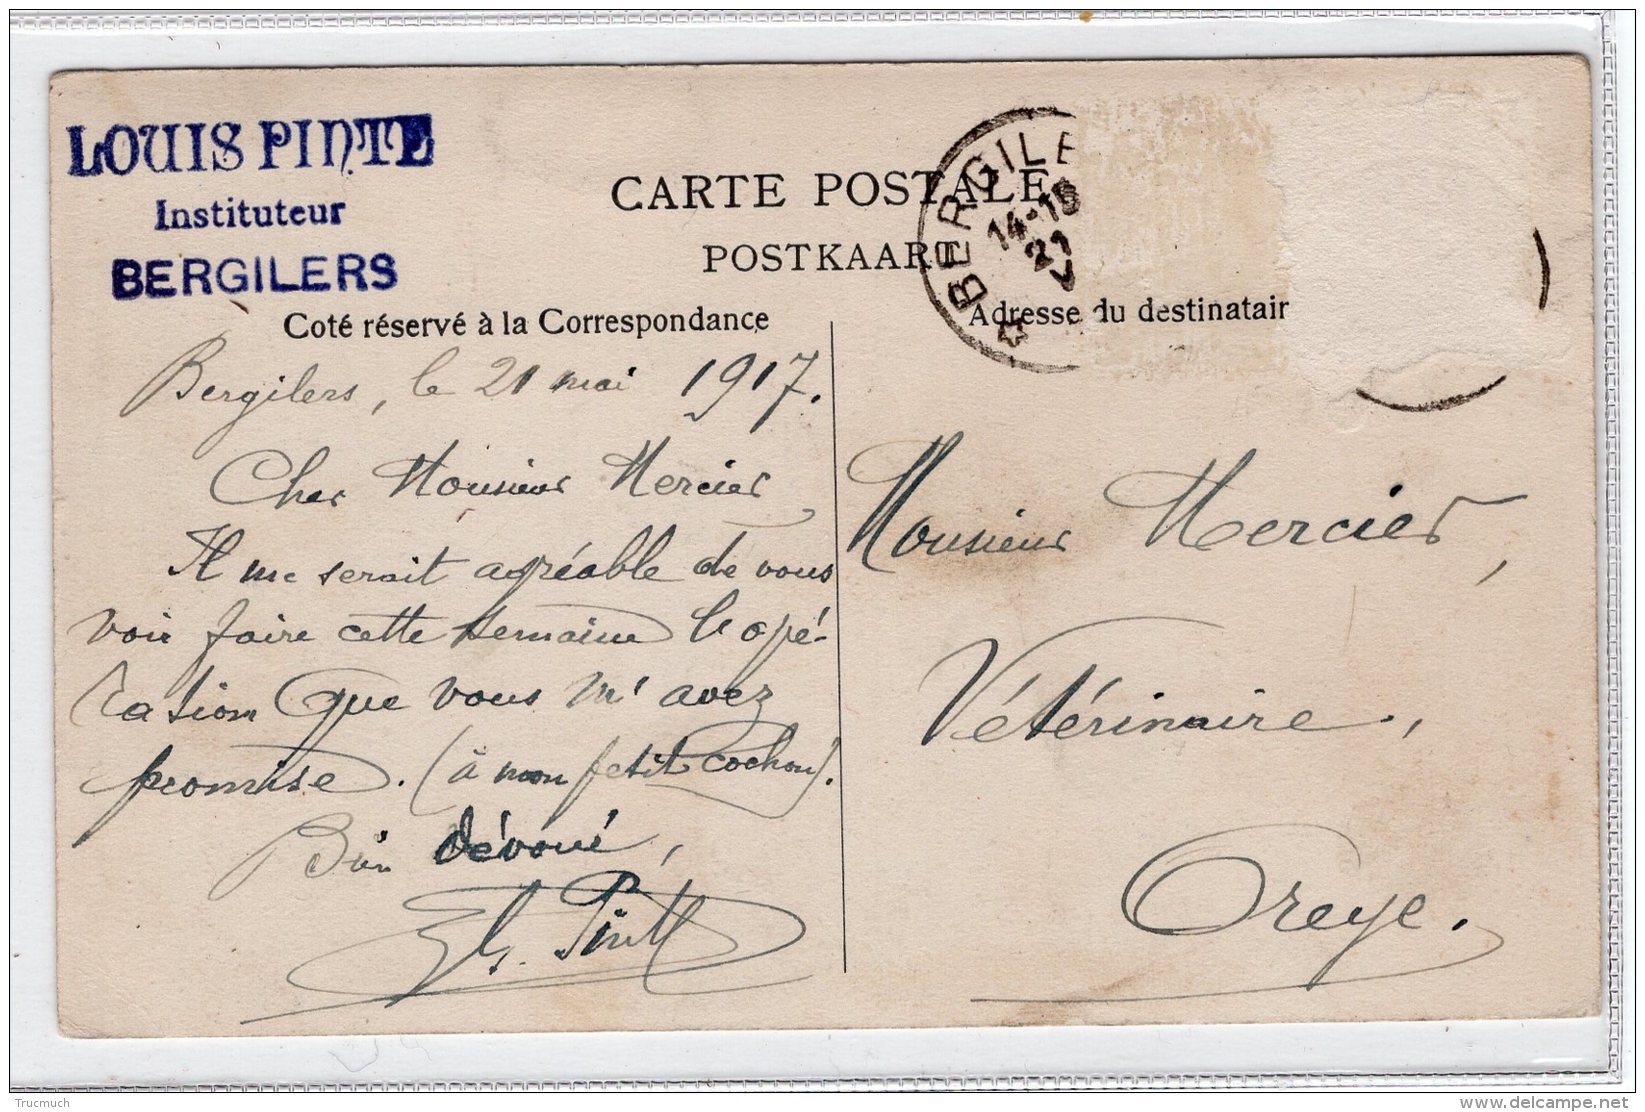 LOUIS PINTE
Instituteur
BERGILERS
CARTE POSTALE
POSTKAART
BERGILE
14-15
21
V
Coté réservé à la Correspondance
Adresse du destinatair
Bergilers, le 21 mai 1917.
Cher Monsieur Mercier
Il me serait agréable de vous
voir faire cette semaine l'opé-
ration que vous m'avez
promise. (à mon petit cochon).
Bien dévoué,
Ls. Pinte
Monsieur Mercier,
Vétérinaire,
Oreye.
Trucmuch
www.delcampe.net